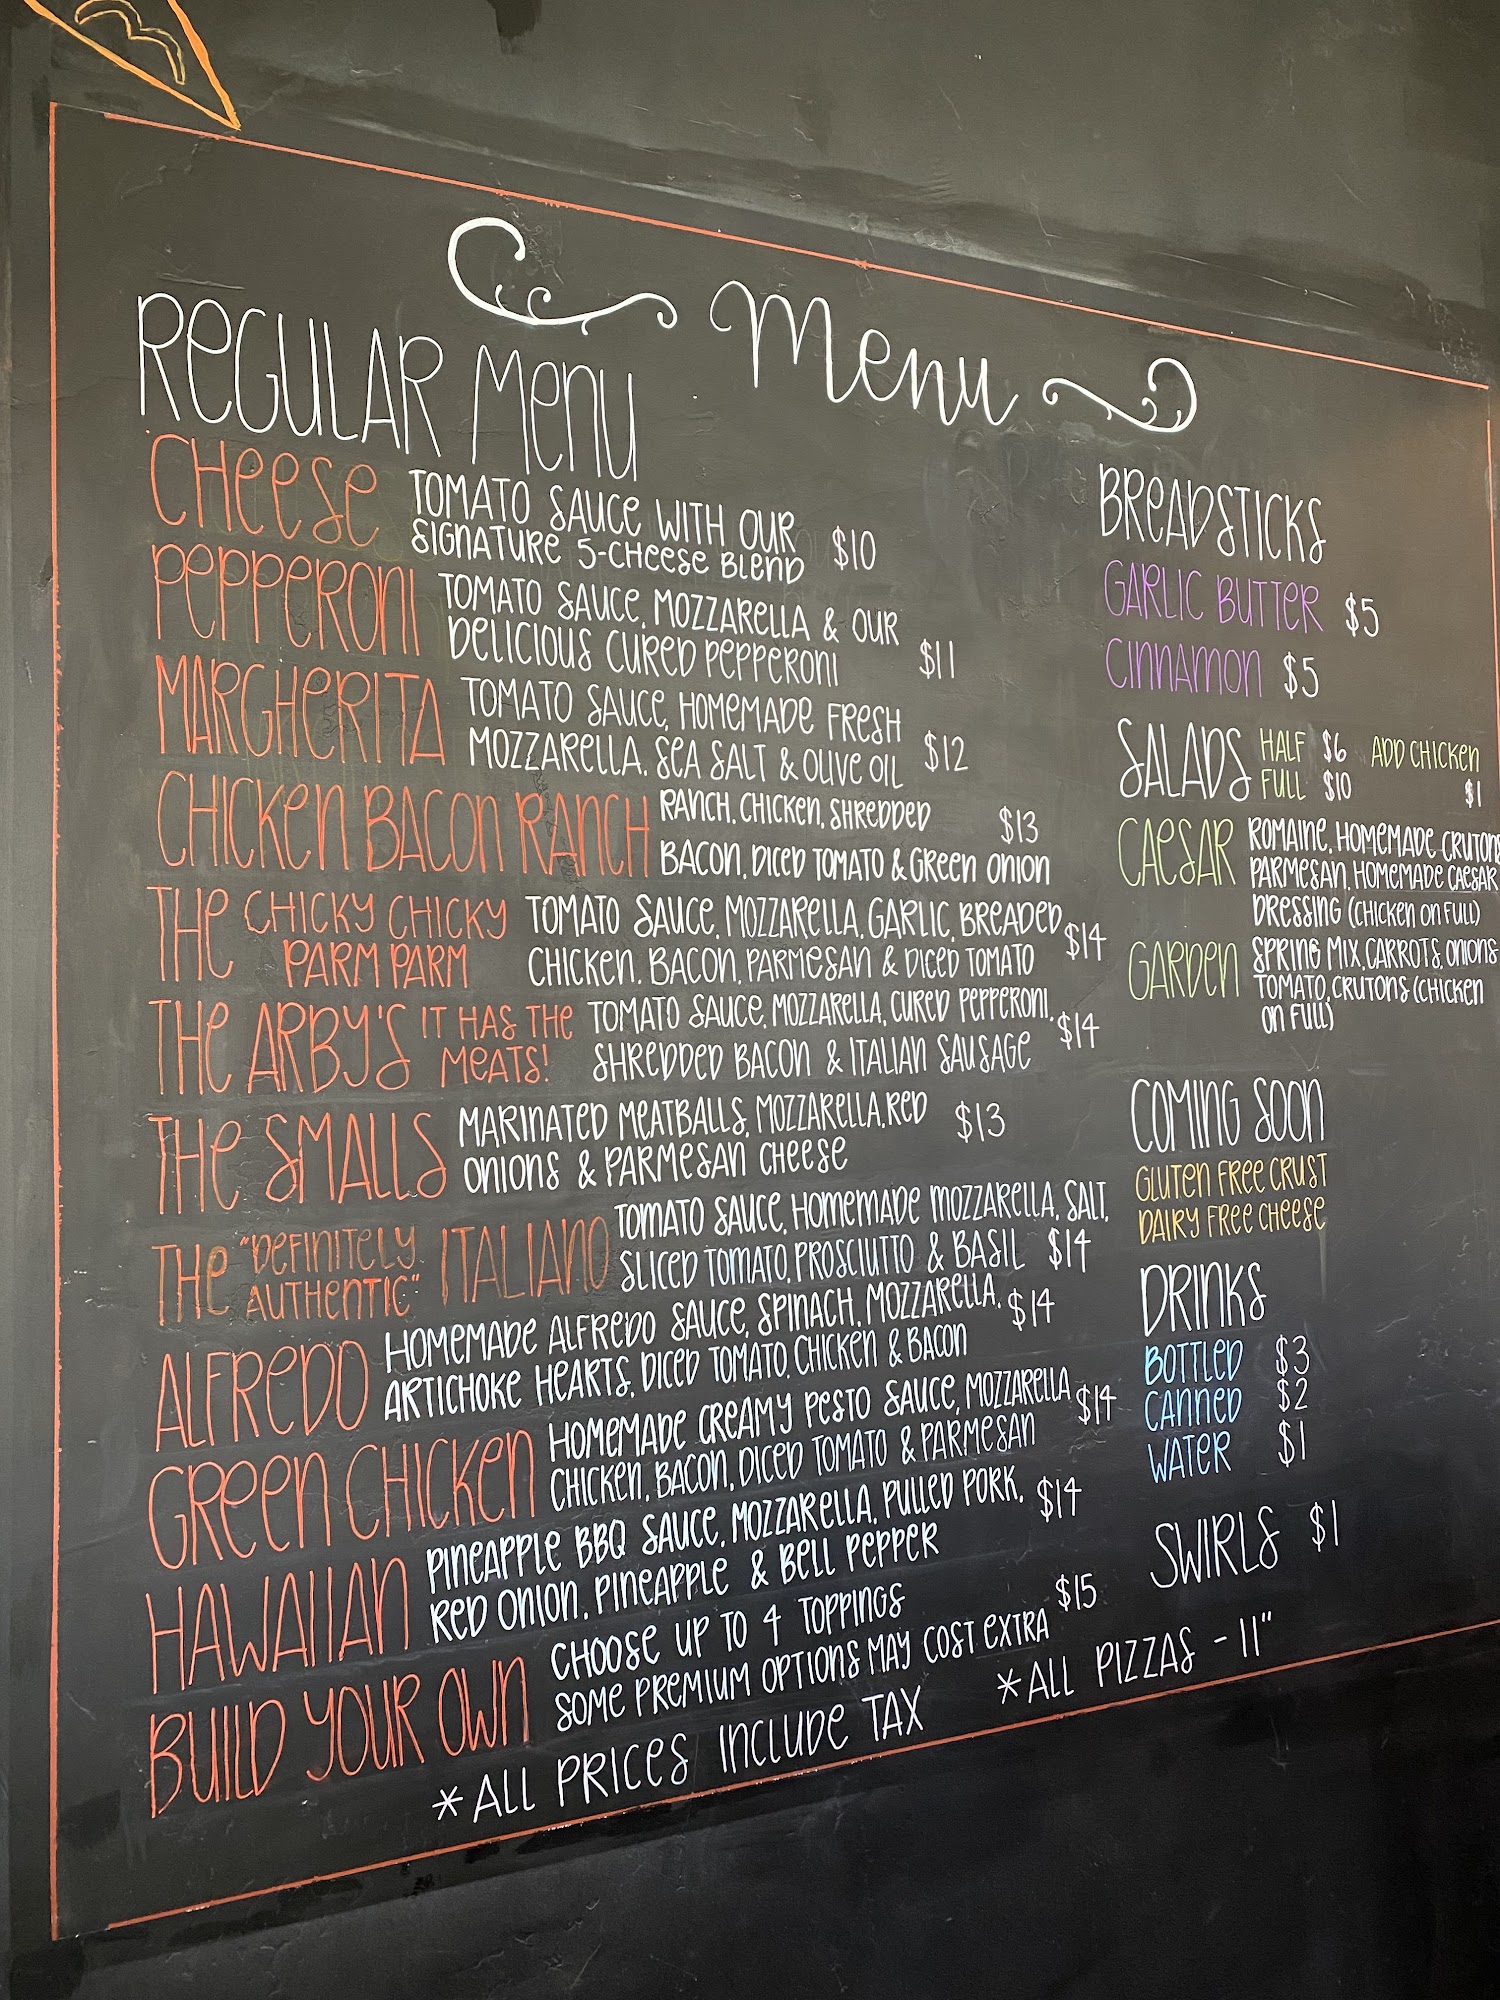 Menu
REGULAR MENU
CHEESE TOMATO SAUCE WITH OUR
SIGNATURE 5-CHEESE BLEND $10
PEPPERONI TOMATO SAUCE, MOZZARELLA & OUR
DELICIOUS CURED PEPPERONI $11
MARGHERITA TOMATO SAUCE, HOMEMADE FRESH
MOZZARELLA, SEA SALT & OLIVE OIL $12
CHICKEN BACON RANCH RANCH, CHICKEN, SHREDDED $13
BACON, DICED TOMATO & GREEN ONION
THE CHICKY CHICKY
PARM PARM
TOMATO SAUCE, MOZZARELLA, GARLIC, BREADED
CHICKEN, BACON, PARMESAN & DICED TOMATO $14
THE ARBY'S IT HAS THE
MEATS!
TOMATO SAUCE, MOZZARELLA, CURED PEPPERONI,
SHREDDED BACON & ITALIAN SAUSAGE $14
THE SMALLS MARINATED MEATBALLS, MOZZARELLA, RED
ONIONS & PARMESAN CHEESE $13
THE "DEFINITELY
AUTHENTIC" ITALIANO
TOMATO SAUCE, HOMEMADE MOZZARELLA, SALT,
SLICED TOMATO, PROSCIUTTO & BASIL $14
ALFREDO HOMEMADE ALFREDO SAUCE, SPINACH, MOZZARELLA,
ARTICHOKE HEARTS, DICED TOMATO, CHICKEN & BACON $14
GREEN CHICKEN HOMEMADE CREAMY PESTO SAUCE, MOZZARELLA
CHICKEN, BACON, DICED TOMATO & PARMESAN $14
HAWAIIAN PINEAPPLE BBQ SAUCE, MOZZARELLA, PULLED PORK,
RED ONION, PINEAPPLE & BELL PEPPER $14
BUILD YOUR OWN CHOOSE UP TO 4 TOPPINGS
SOME PREMIUM OPTIONS MAY COST EXTRA $15
*ALL PRICES INCLUDE TAX
*ALL PIZZAS - 11"
BREADSTICKS
GARLIC BUTTER $5
CINNAMON $5
SALADS HALF $6 ADD CHICKEN
FULL $10 $1
CAESAR ROMAINE, HOMEMADE CRUTONS
PARMESAN, HOMEMADE CAESAR
DRESSING (CHICKEN ON FULL)
GARDEN SPRING MIX, CARROTS, ONIONS
TOMATO, CRUTONS (CHICKEN
ON FULL)
COMING SOON
GLUTEN FREE CRUST
DAIRY FREE CHEESE
DRINKS
BOTTLED $3
CANNED $2
WATER $1
SWIRLS $1